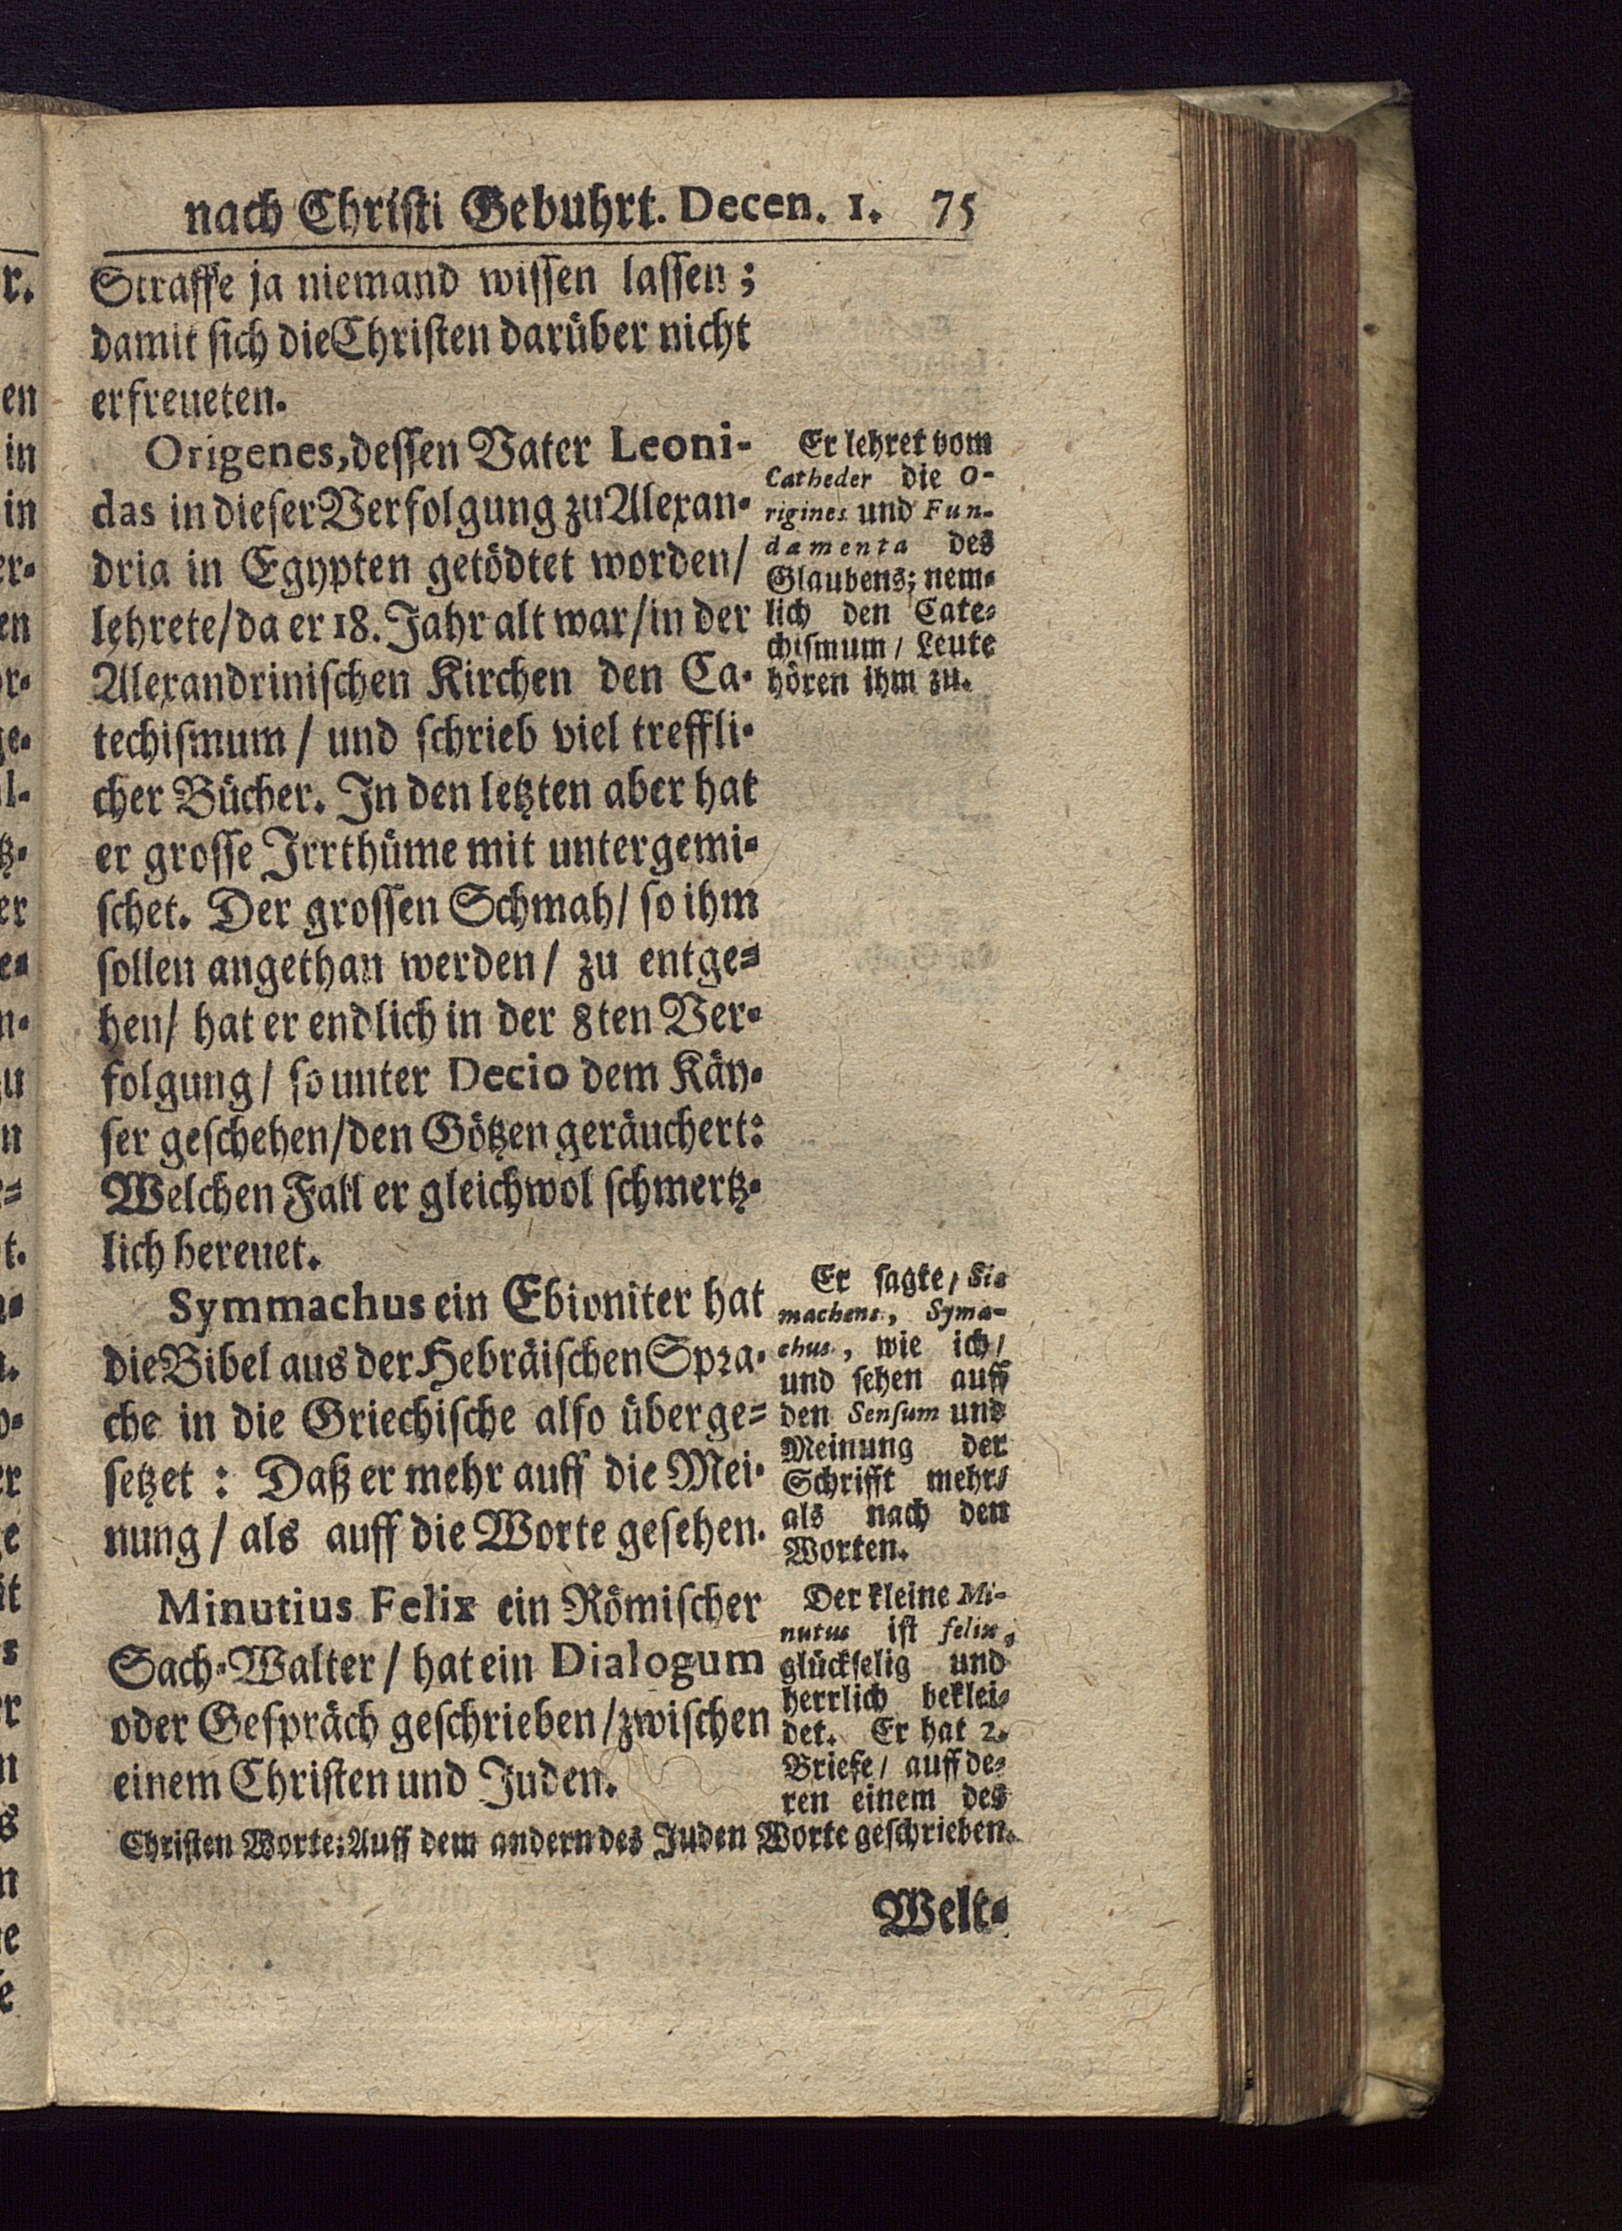 nach Christi Gebuhrt. Decen. 1. 75
Straffe ja niemand wissen lassen;
damit sich die Christen darüber nicht
erfreueten.
Origenes, dessen Vater Leoni-
das in dieser Verfolgung zu Alexan-
dria in Egypten getödtet worden/
lehrete/ da er 18. Jahr alt war/ in der
Alexandrinischen Kirchen den Ca-
techismum / und schrieb viel treffli-
cher Bücher. In den letzten aber hat
er grosse Irrthüme mit untergemi-
schet. Der grossen Schmah/ so ihm
sollen angethan werden/ zu entge-
hen/ hat er endlich in der 8ten Ver-
folgung/ so unter Decio dem Käy-
ser geschehen/ den Götzen geräuchert:
Welchen Fall er gleichwol schmertz-
lich bereuet.
Symmachus ein Ebioniter hat
die Bibel aus der Hebräischen Spra-
che in die Griechische also überge-
setzet : Daß er mehr auff die Mei-
nung / als auff die Worte gesehen.
Minutius Felix ein Römischer
Sach-Walter / hat ein Dialogum
oder Gespräch geschrieben/ zwischen
einem Christen und Juden.
Er lehret vom
Catheder die O-
rigines und Fun-
damenta des
Glaubens; nem-
lich den Cate-
chismum / Leute
hören ihm zu.
Er sagte/ Sie
machens, Syma-
chus, wie ich/
und sehen auff
den Sensum und
Meinung der
Schrifft mehr/
als nach den
Worten.
Der kleine Mi-
nutus ist felix,
glückselig und
herrlich beklei-
det. Er hat 2.
Briefe/ auff de-
ren einem des
Christen Worte: Auff dem andern des Juden Worte geschrieben.
Welt-